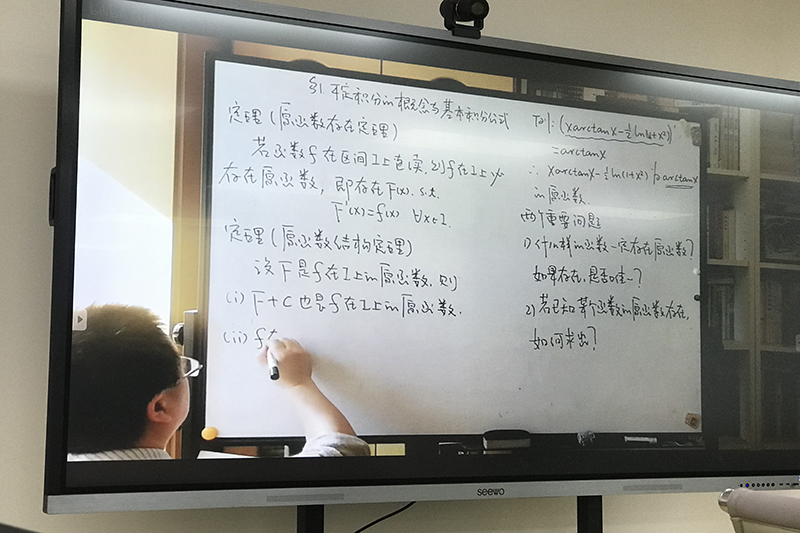 §1 不定积分的概念与基本积分公式
定理(原函数存在定理)
若函数f在区间I上连续,则f在I上必
存在原函数,即存在F(x), s.t.
F'(x)=f(x) ∀x∈I.
定理(原函数结构定理)
设F是f在I上的原函数,则
(i) F+C也是f在I上的原函数.
(ii) f在
(xarctanx-½ln(1+x²))'
=arctanx
∴ xarctanx-½ln(1+x²)为arctanx
的原函数.
两个重要问题
1) 什么样的函数一定存在原函数?
如果存在,是否唯一?
2) 若已知某个函数的原函数存在,
如何求出?
seewo